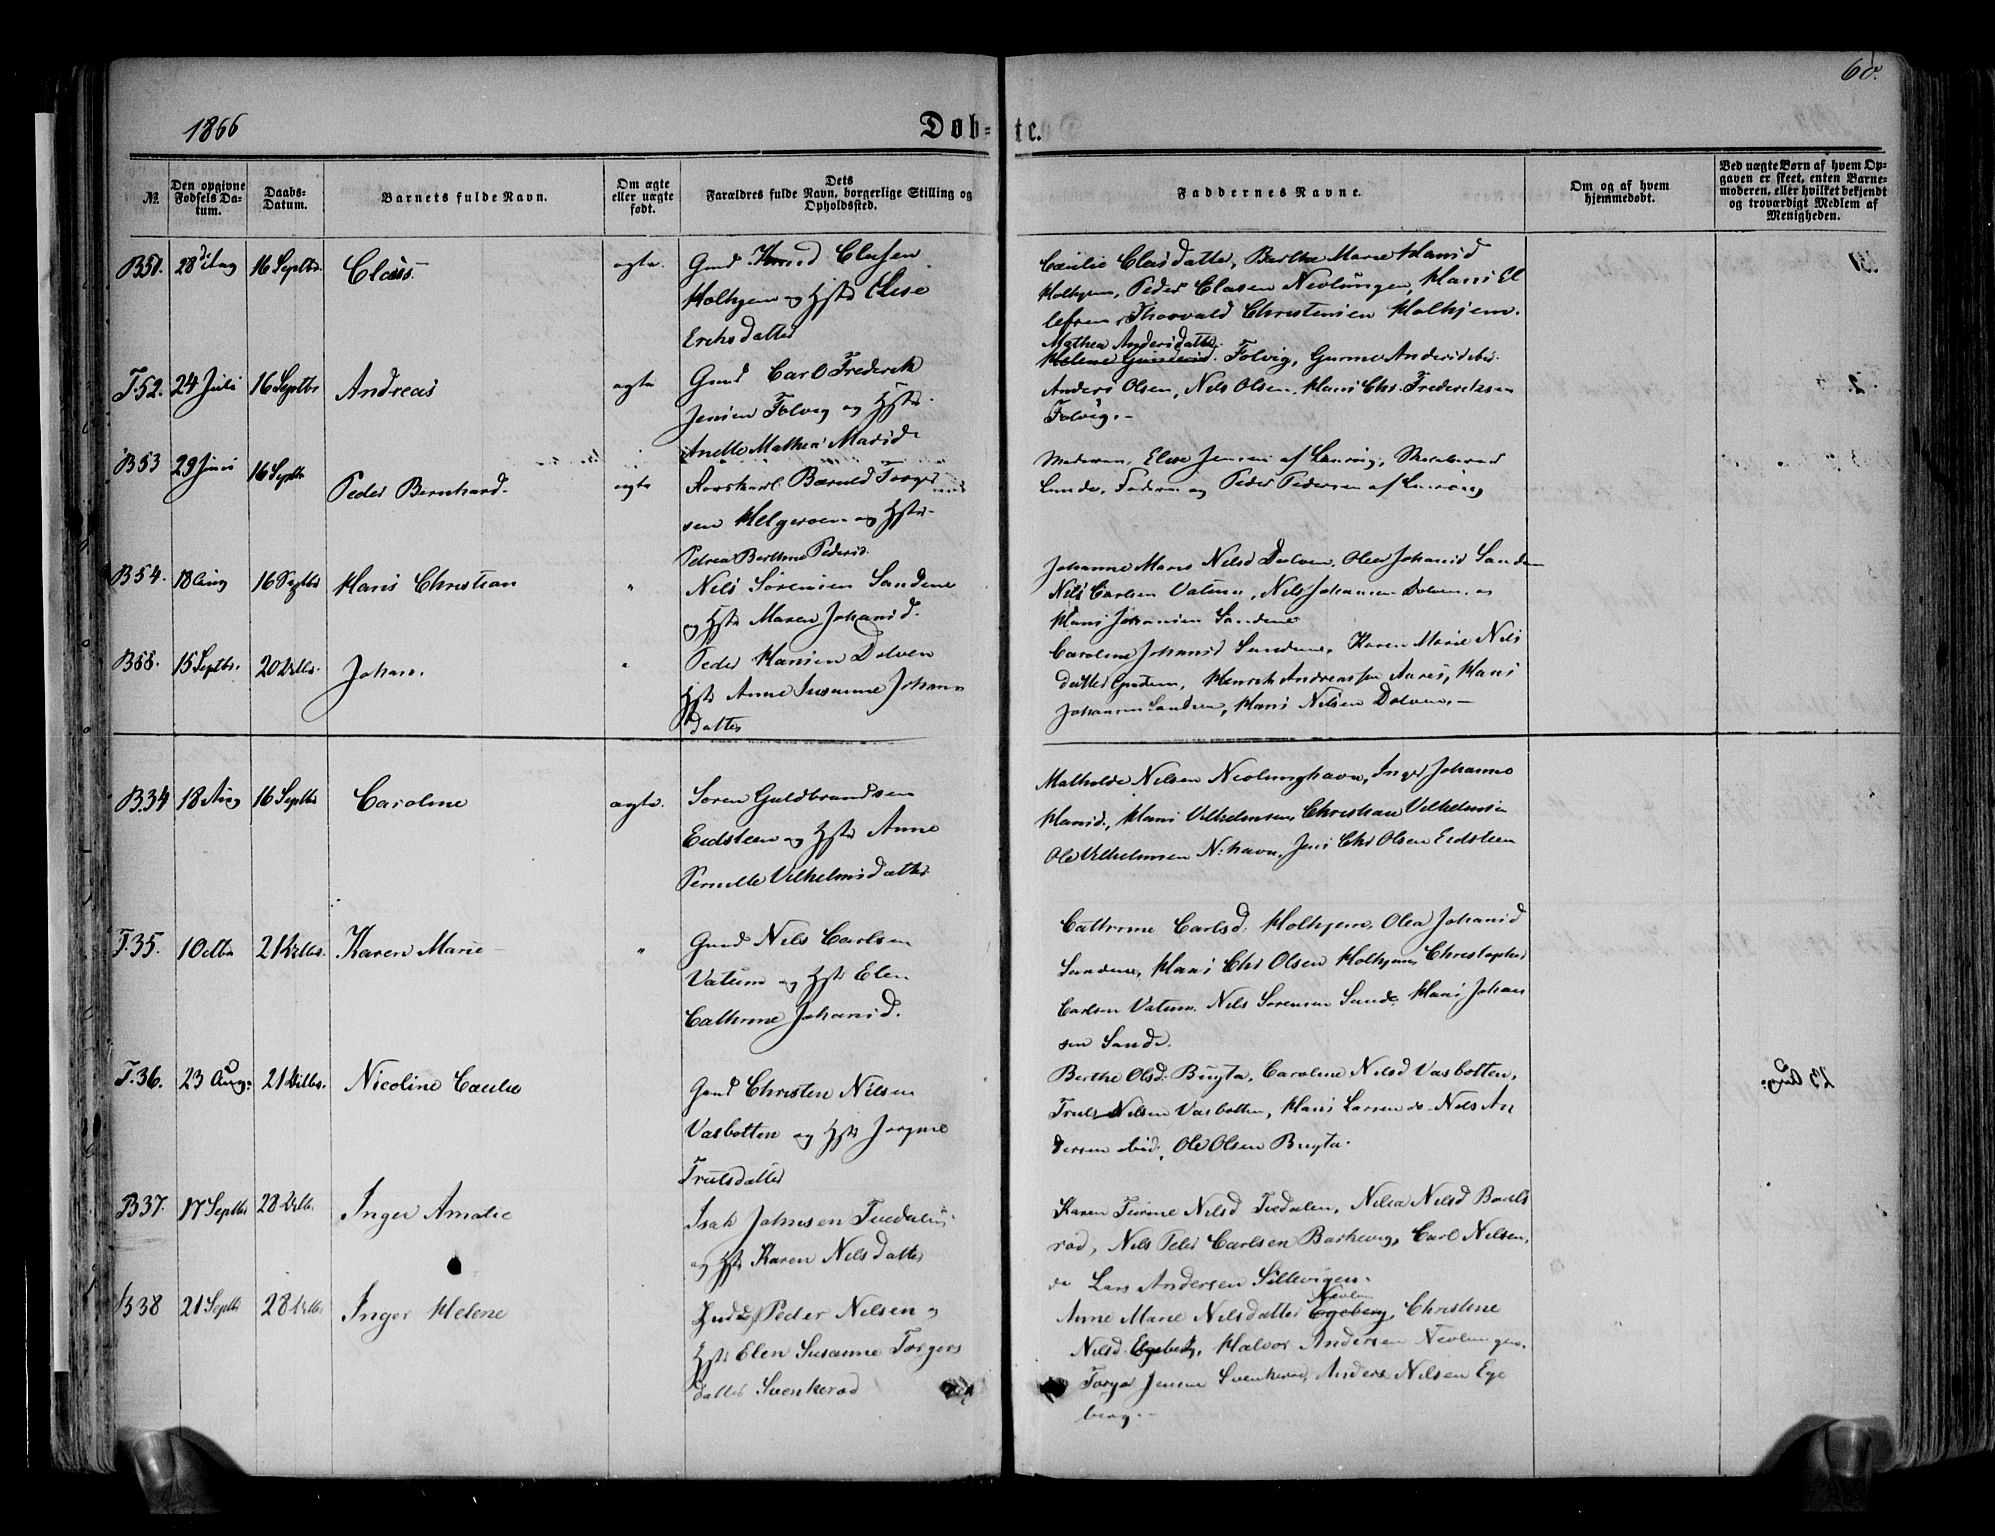 60.
1866
Døb-te.
№
Den opgivne Fødsels Datum.
Daabs-Datum.
Barnets fulde Navn.
Om ægte eller uægte født.
Dets Forældres fulde Navn, borgerlige Stilling og Opholdssted.
Faddernes Navne.
Om og af hvem hjemmedøbt.
Ved uægte Børn af hvem Opgaven er skeet, enten Barnemoderen, eller hvilket bekjendt og troværdigt Medlem af Menigheden.
B51. 28 Aug 16 Septbr. Claus ægte. Gmd. Knud Clasen
Holhjem og Hstr Elise
Erichsdatter
Cæcilie Clasdatter, Berthe Marie Hansd
Holhjem, Peder Clasen Nevlungen, Hans El
lefsen, Thorvald Christensen Holhjem.
T.52. 24 Juli 16 Septbr Andreas ægte Gmd Carl Frederik
Jensen Folvig og Hstr
Anette Mathea Marisd.
Mathea Andersdatter
Helene Folvig, Andersd ibd.
Anders Olsen, Nils Olsen, Hans Chr. Frederiksen
Folvig.-
B53 29 Juni 16 Septbr Peder Bernhard. ægte Bærnt Torger
sen Helgeroen og Hstr
Petrea Berthine Pedersd.
Moderen, Elise Jensen af Laurvig,
Lunde, Faderen og Peder Pedersen af Laurvig
B54. 18 Aug 16 Septbr Hans Christian " Nils Sørensen Sandene
og Hstr Maren Johansd.
Johanne Marie Nilsd Dolven, Olea Johansd Sanden
Nils Carlsen Vatum, Nils Johansen Dolven, og
Hans Johansen Sandene
B55. 15 Septbr. 20 Octbr. Johan. " Peder Hansen Dolven
Hstr Anne Susanne Johans
datter
Caroline Johansd Sandene, Karen Marie Nils
datter, Henrik Andreassen Aarøs, Hans
Johansen Sanden, Hans Nilsen Dolven.-
B.34 18 Aug 16 Septbr Caroline ægte. Søren Guldbrandsen
Eidsteen og Hstr Anne
Pernille Vilhelmsdatter
Mathilde Nilsen Nevlunghavn, Inger Johanne
Hansd., Hans Vilhelmsen, Christian Vilhelmsen
Ole Vilhelmsen N:havn, Jens Chr Olsen Eidsteen
T.35. 1 Octbr 21 Octbr. Karen Marie " Gmd Nils Carlsen
Vatum og Hstr Elen
Cathrine Johansd.
Cathrine Carlsd. Holhjem, Olea Johansd
Sandene, Hans Chr Olsen Holhjem, Christopher
Carlsen Vatum, Nils Sørensen Sande, Hans Johan
sen Sande.
T.36. 23 Aug: 21 Octbr. Nicoline Cæcilie Gmd Christen Nilsen
Vasbotten og Hstr Jørgine
Trulsdatter
Berthe Olsd. Bugta, Caroline Nilsd Vasbotten,
Truls Nilsen Vasbotten, Hans Larsen do. Nils An
dersen ibid, Ole Olsen Bugta.
B37. 17 Septbr 28 Octbr. Inger Amalie Isak Johnsen Tvedalen
og Hstr Karen Nilsdatter
Karen Nilsd Tvedalen, Nilsd
rød, Nils Peder Carlsen Barkevig, Carl Nilsen,
do Lars Andersen Sillevigen.
B38 21 Septbr 28 Octbr Inger Helene Peder Nilsen og
Hstr Elen Susanne Torgers
datter Svenkerød
Nevlun
Anne Marie Nilsdatter Egeberg, Christine
Nilsd. Egeberg, Halvor Andersen Nevlungen.
Torger Jensen Svenkerød, Anders Nilsen Ege
berg.-